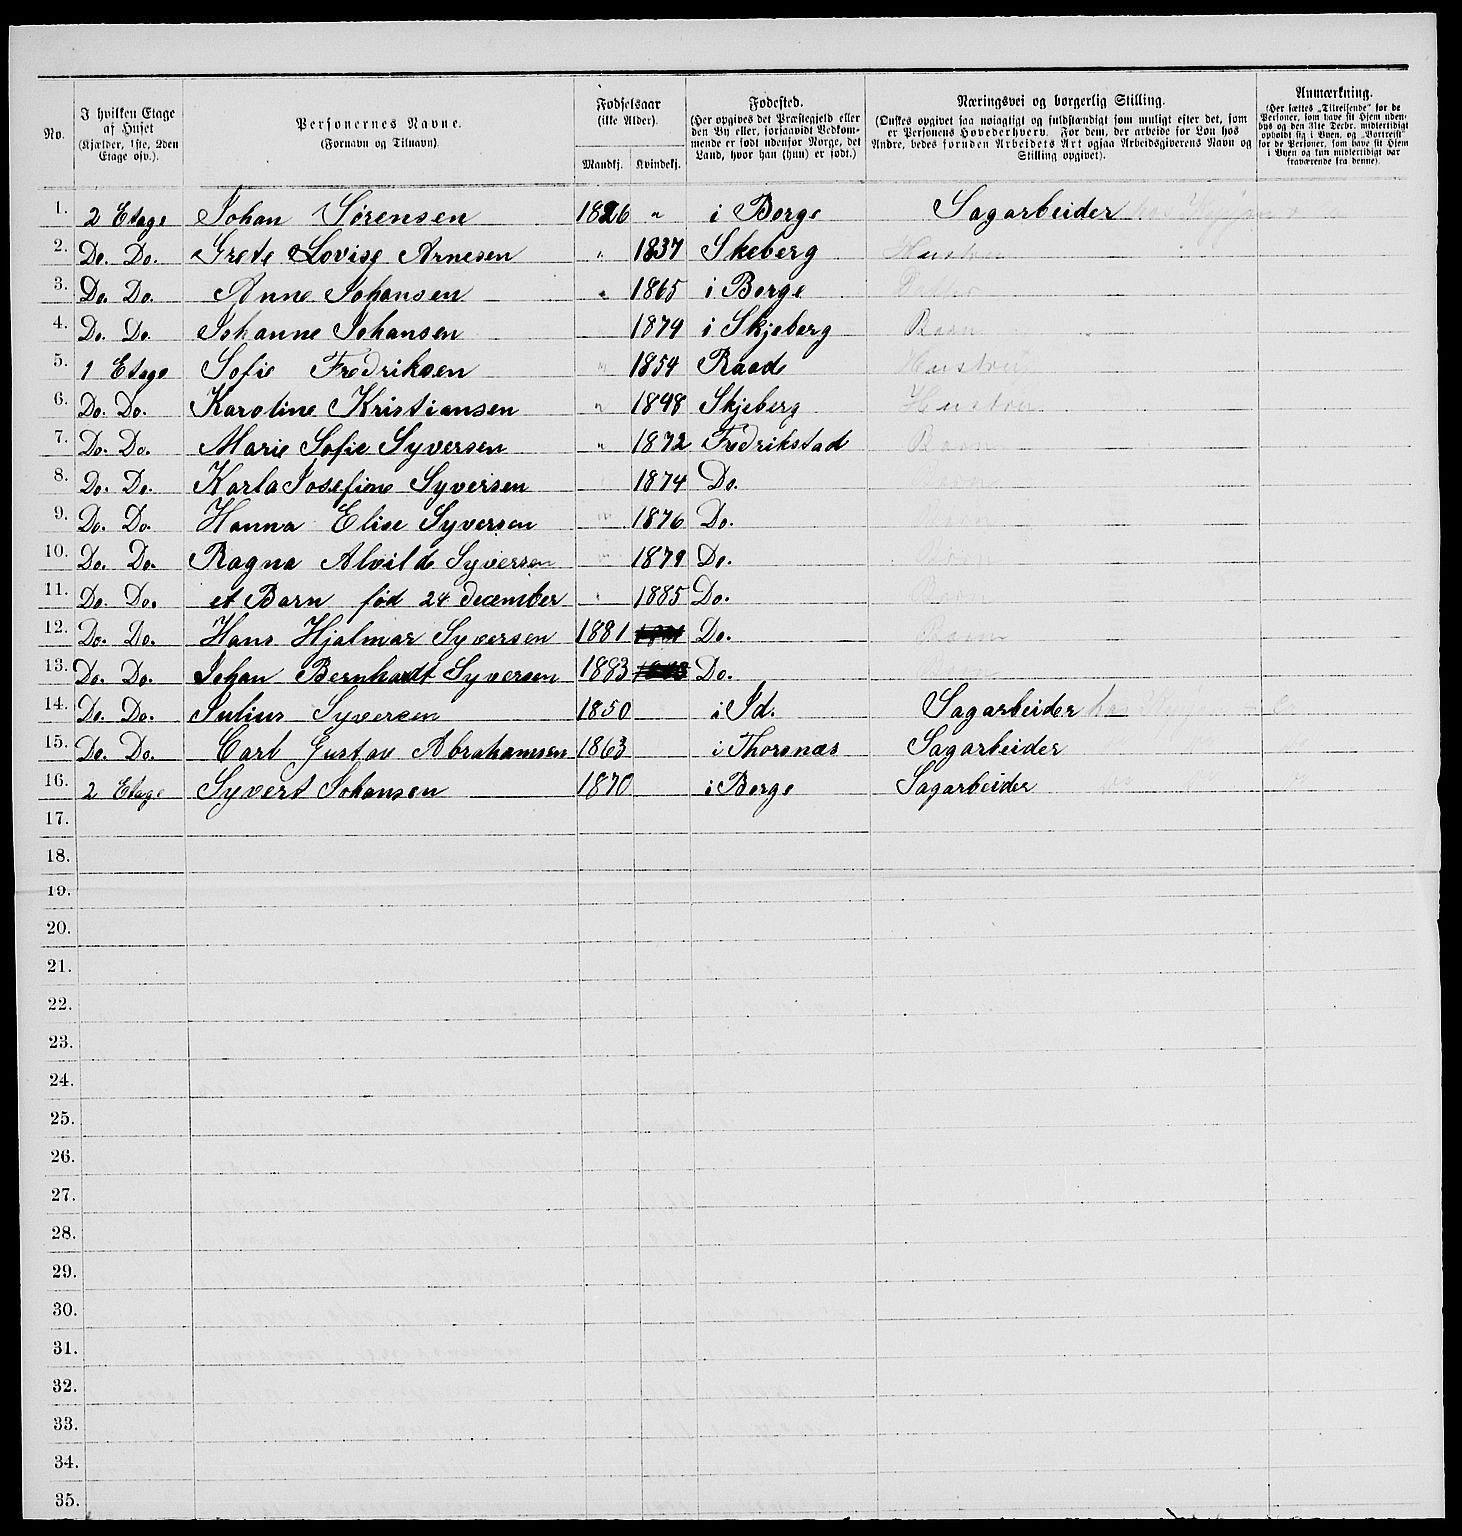 No. | I hvilken Etage af Huset (Kjælder, 1ste, 2den Etage osv.). | Personernes Navne. (Fornavn og Tilnavn). | Fødselsaar (ikke Alder). Mandkj. | Kvindekj. | Fødested. (Her opgives det Præstegjeld eller den By eller, forsaavidt Vedkommende er født udenfor Norge, det Land, hvor han (hun) er født.) | Næringsvei og borgerlig Stilling. (Ønskes opgivet saa nøiagtigt og fuldstændigt som muligt efter det, som er Personens Hovederhverv. For dem, der arbeide for Løn hos Andre, bedes foruden Arbeidets Art ogsaa Arbeidsgiverens Navn og Stilling opgivet). | Anmærkning. (Her sættes „Tilreisende“ for de Personer, som have sit Hjem udenbys og den 31te Decbr. midlertidigt opholdt sig i Byen, og „Bortreist“ for de Personer, som have sit Hjem i Byen og kun midlertidigt var fraværende fra denne).
1. 2 Etage Johan Sørensen 1826 " i Borge Sagarbeider hos
2. Do. Do. Grete Lovise Arnesen " 1837 Skeberg Hustru
3. Do. Do. Anne Johansen " 1865 i Borge
4. Do. Do. Johanne Johansen 1879 i Skjeberg Barn
5. 1 Etage Sofie Fredriksen " 1854 Raade Hustru
6. Do. Do. Karoline Kristiansen " 1848 Skjeberg Hustru
7. Do. Do. Marie Sofie Syversen " 1872 Fredrikstad Barn
8. Do. Do. Karla Josefine Syversen 1874 Do.
9. Do. Do. Hanna Elise Syversen " 1876 Do.
10. Do. Do. Ragna Alvilde Syversen " 1879 Do.
11. Do. Do. et Barn fød 24 December " 1885 Do. Barn
12. Do. Do. Hans Hjalmar Syversen 1881 Do. Barn
13. Do. Do. Johan Bernhardt Syversen 1883 Do.
14. Do. Do. Julius Syversen 1850 i Id. Sagarbeider hos
15. Do. Do. Carl Gustav Abrahamsen 1863 i Thorsnæs Sagarbeider
16. 2 Etage Syvert Johansen 1870 i Borge Sagarbeider
17.
18.
19.
20.
21.
22.
23.
24.
25.
26.
27.
28.
29.
30.
31.
32.
33.
34.
35.